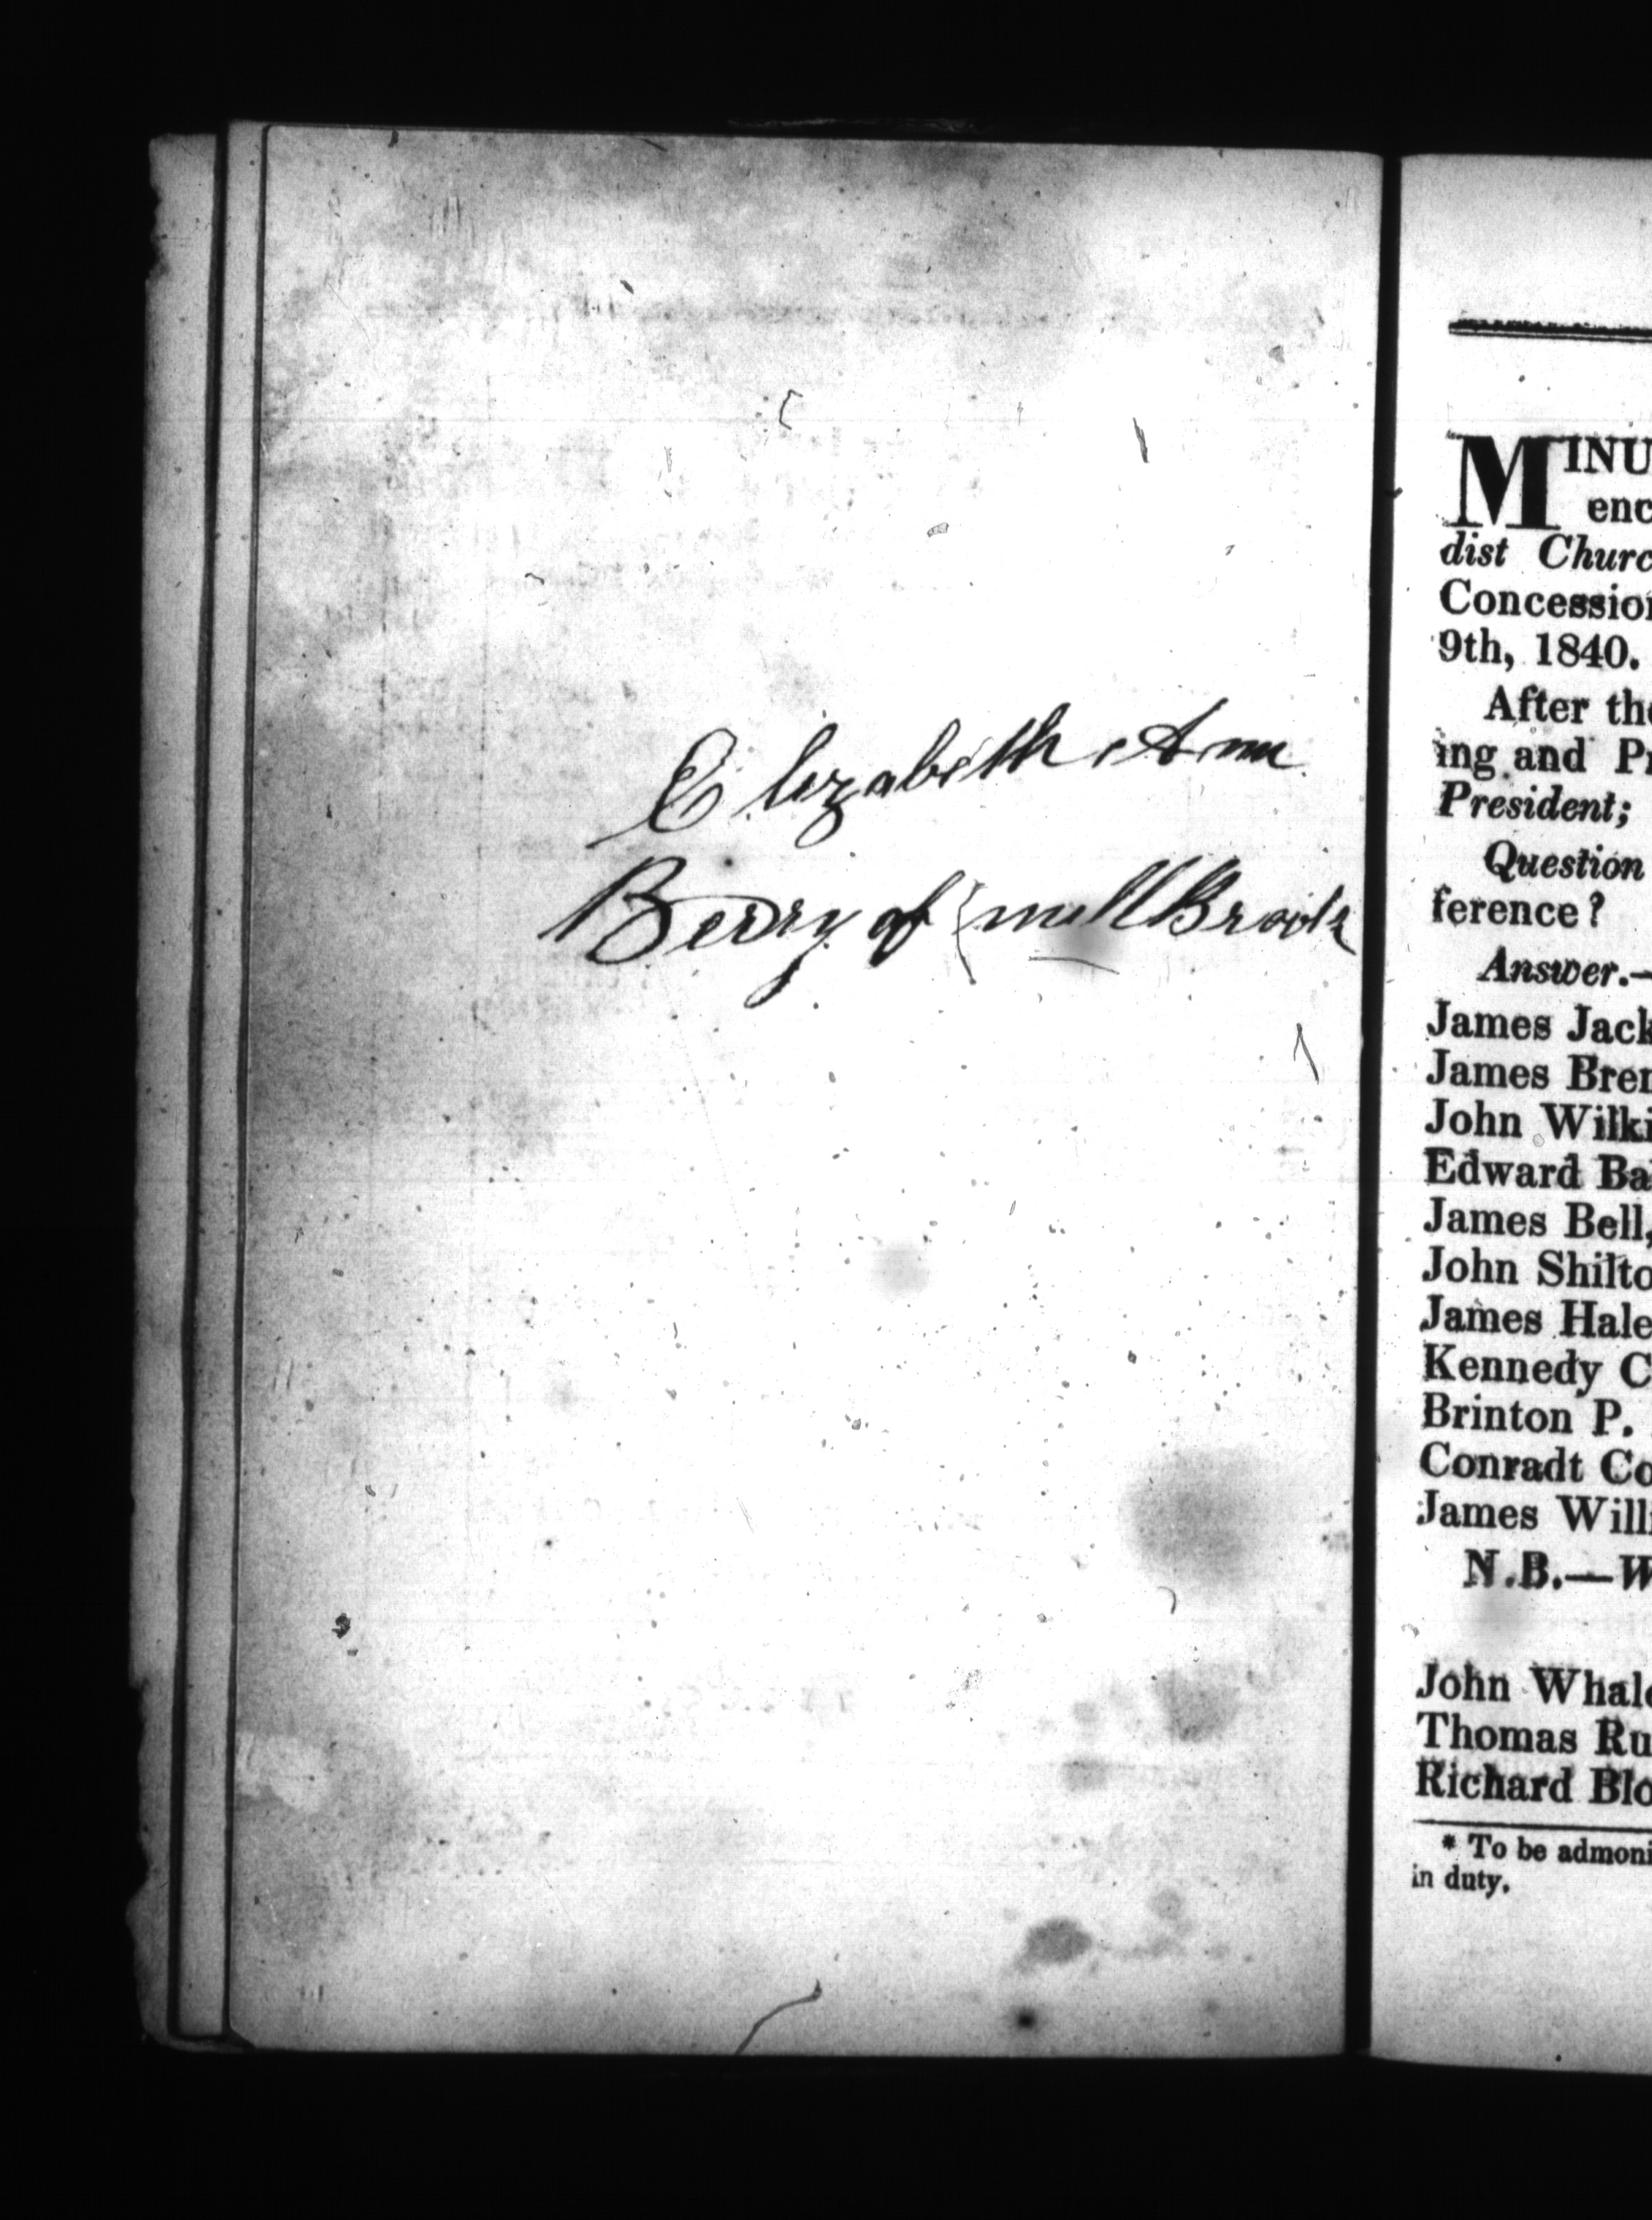 Elizabeth Ann
Berry of millBrook
MINU
enc
dist Churc
Concession
9th, 1840.
After the
ing and Pr
President;
Question
ference?
Answer.—
James Jack
James Bren
John Wilki
Edward Ba
James Bell,
John Shilto
James Hale
Kennedy C
Brinton P.
Conradt Co
James Willi
N.B.—W
John Whale
Thomas Ru
Richard Blo
* To be admoni
in duty.